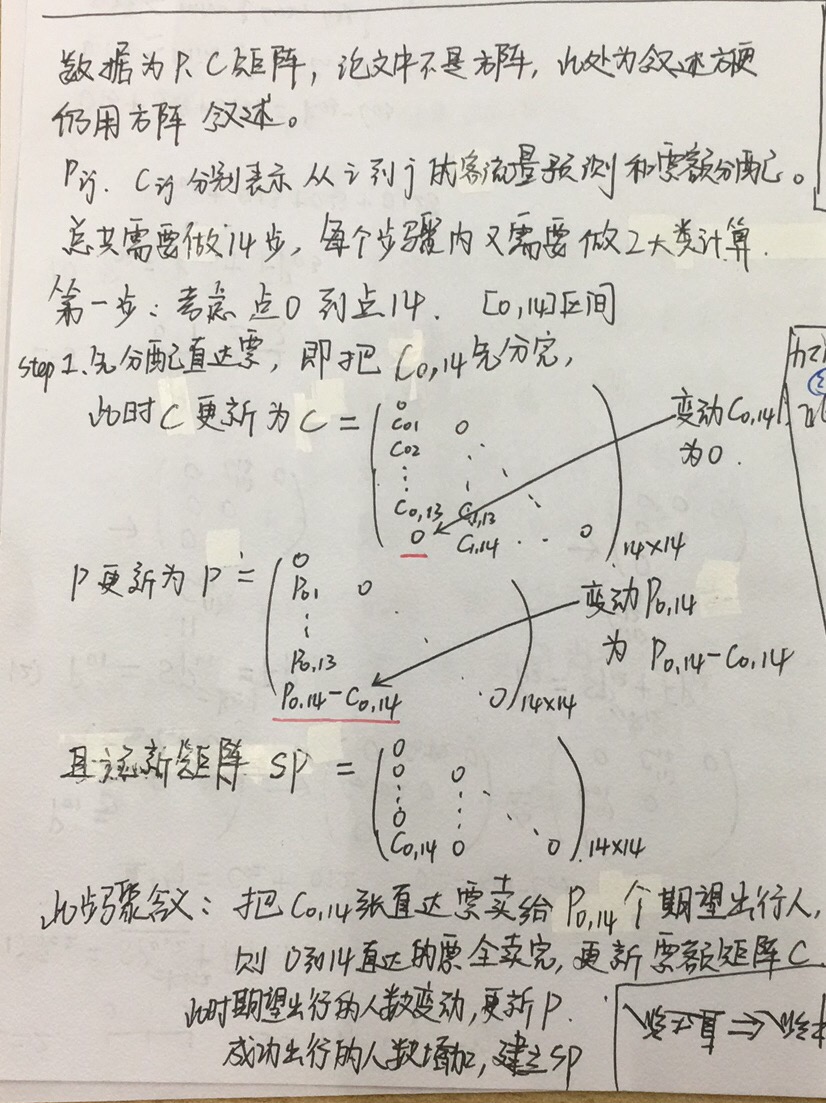 数据为P、C矩阵，论文中不是方阵，此处为叙述方便
仍用方阵 叙述。
Pij、Cij 分别表示 从i到j的客流量预测和票额分配。
总共需要做14步，每个步骤内又需要做2大类计算.
第一步：考虑 点0 到点14. [0,14]区间
step 1. 先分配直达票，即把 C0,14 先分完，
此时C更新为 C =
0
C01 0
C02
⋮
C0,13 C1,13
0 C1,14 ... 0
14×14
变动C0,14
为0.
P更新为P =
0
P0,1 0
⋮
P0,13
P0,14-C0,14 0
14×14
变动P0,14
为 P0,14-C0,14
且新矩阵 SP =
0
0 0
⋮
0
C0,14 0 0
14×14
此步骤含义：把C0,14张直达票卖给P0,14个期望出行人，
则 0到14直达的票全卖完，更新票额矩阵C.
此时期望出行的人数变动，更新P.
成功出行的人数增加，建立SP